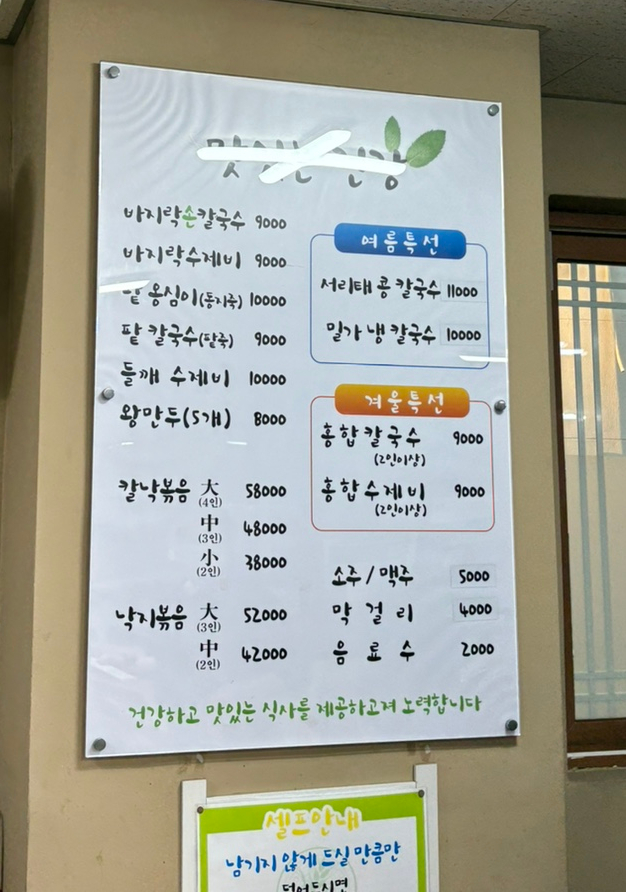 바지락손칼국수 9000
바지락수제비 9000
팥 옹심이(동지죽) 10000
팥 칼국수(팥죽) 9000
들깨 수제비 10000
왕만두(5개) 8000
칼낙볶음 大 58000
(4인)
中 48000
(3인)
小 38000
(2인)
낙지볶음 大 52000
(3인)
中 42000
(2인)
여름특선
서리태 콩 칼국수 11000
밀가 냉 칼국수 10000
겨울특선
홍합칼국수 9000
(2인이상)
홍합수제비 9000
(2인이상)
소주/맥주 5000
막걸리 4000
음료수 2000
건강하고 맛있는 식사를 제공하고져 노력합니다
셀프안내
남기지 않게 드실 만큼만